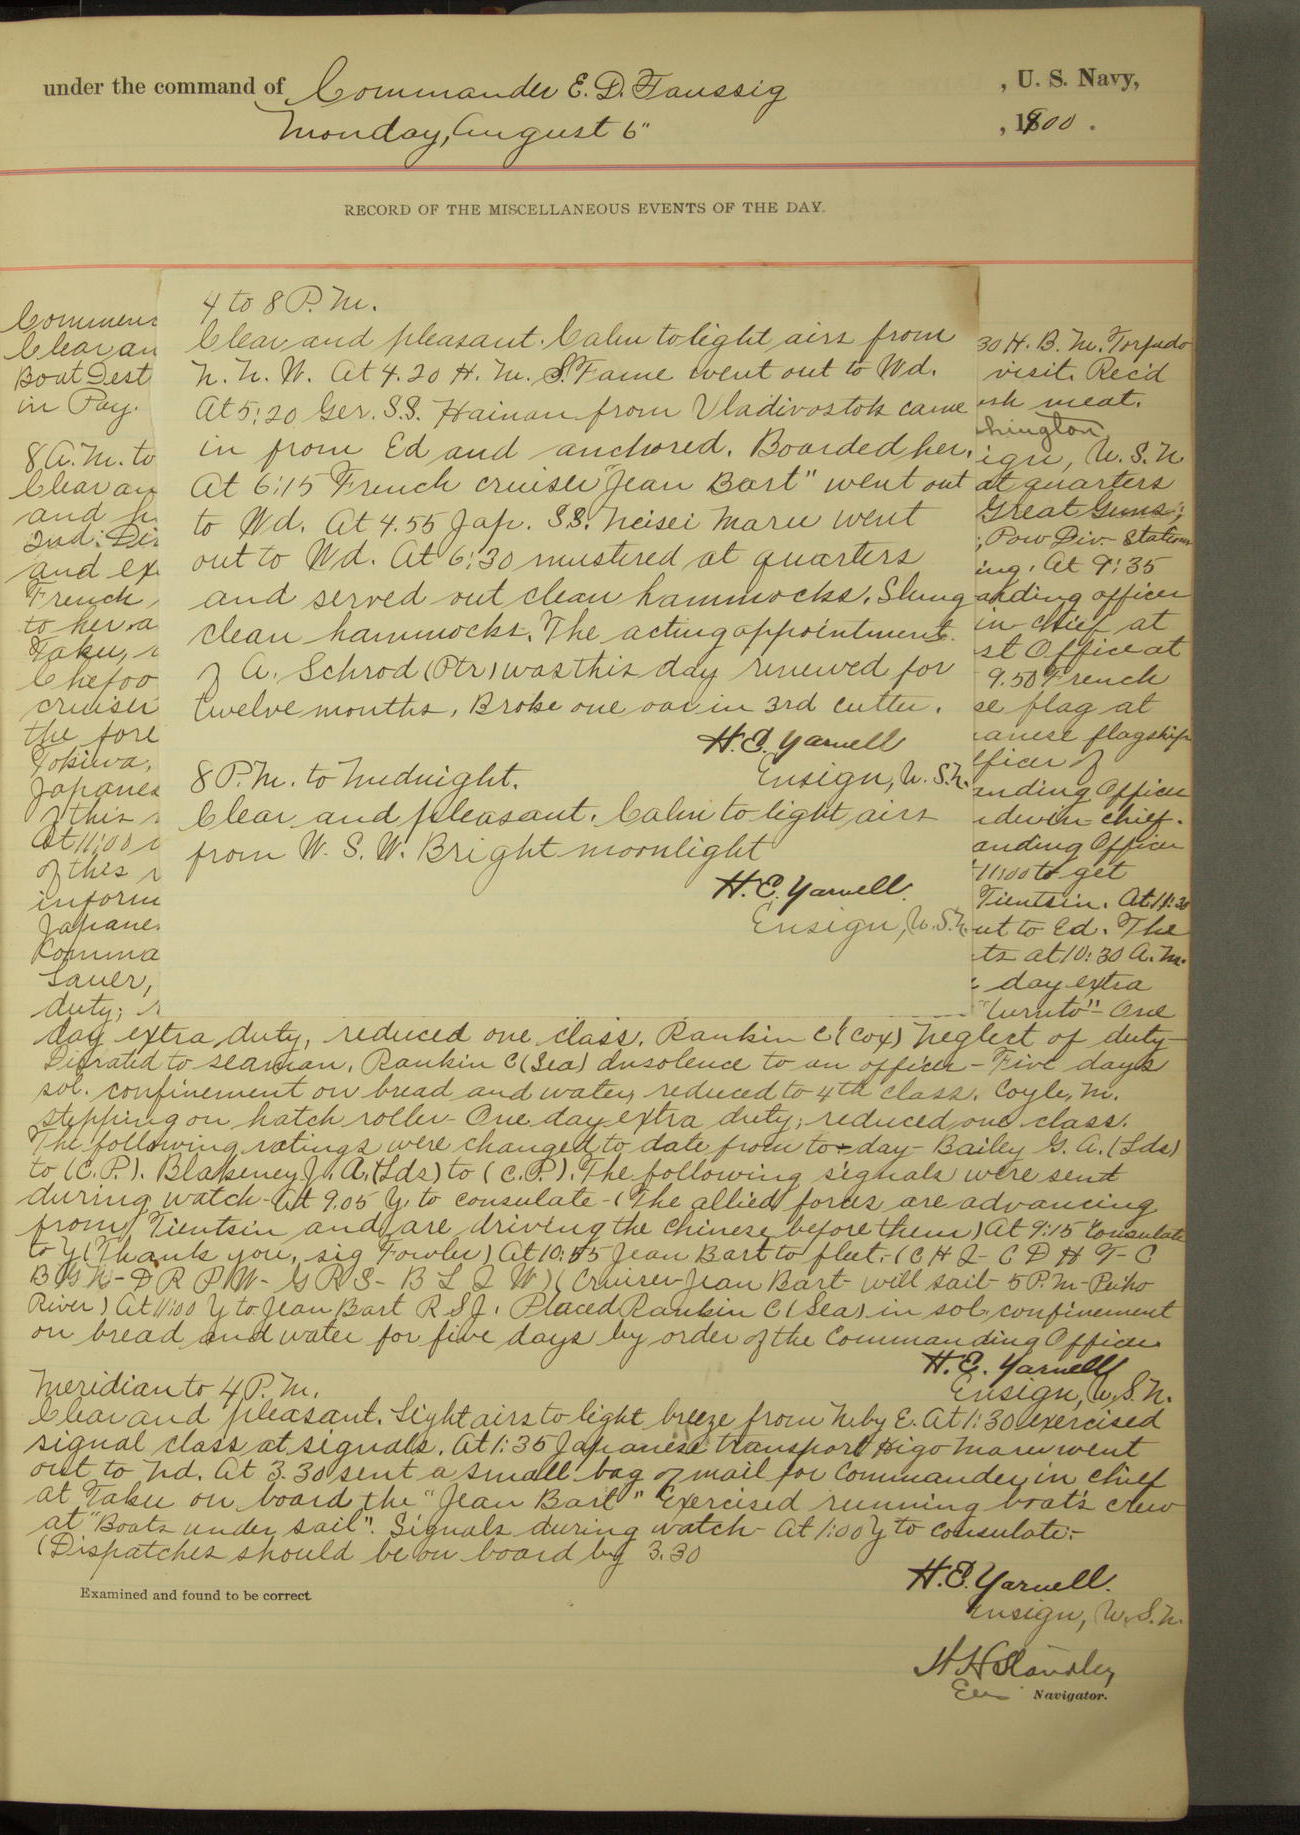 under the command of Commander E. D. Taussig, U. S. Navy,
Monday, August 6", 1900.
RECORD OF THE MISCELLANEOUS EVENTS OF THE DAY.
4 to 8 P.M.
Clear and pleasant. Calm to light airs from
N. N. W. At 4.20 H. M. S. Fame went out to Wd.
At 5:20 Ger. S.S. Hainan from Vladivostok came
in from Ed and anchored. Boarded her.
At 6:15 French cruiser "Jean Bart" went out
to Wd. At 4.55 Jap. S.S. Neisei Maru went
out to Wd. At 6:30 mustered at quarters
and served out clean hammocks. Slung
clean hammocks. The acting appointment
of A. Schrod (Ptr) was this day renewed for
twelve months. Broke one oar in 3rd cutter.
H. E. Yarnell
Ensign, U. S. N.
8 P.M. to Midnight.
Clear and pleasant. Calm to light airs
from W. S. W. Bright moonlight
H. E. Yarnell.
Ensign, U. S. N.
Commen
Clear an
Boat Dest
in Pay.
8 A.M. to
Clear an
and
2nd. Di
and ex
French
to her a
Taku,
Chefoo
cruiser
the fore
Tokiwa,
Japanes
of this
At 11:00
of this
inform
Japane
Comma
Sauer,
duty;
30 H. B. M. Torpedo
visit. Rec'd
sh meat.
hington
ign, U. S. N
at quarters
Great Guns;
; Pow Div- Stations
ing. At 9:35
anding officer
in-chief at
st Office at
9.50 French
se flag at
anese flagship
fficer of
anding Officer
der in chief.
anding Officer
11:00 to get
Tientsin. At 11:30
ut to Ed. The
ts at 10:30 A.M.
day extra
One
day extra duty, reduced one class. Rankin C (Cox) Neglect of duty-
Disrated to seaman. Rankin C (Sea) Insolence to an officer- Five days
sol. confinement on bread and water, reduced to 4th class. Coyle, M.
stepping on hatch roller- One day extra duty; reduced one class.
The following ratings were changed to date from to-day- Bailey G. A. (Lds)
to (C.P.). Blakeney J. A. (Lds) to (C.P.). The following signals were sent
during watch- At 9.05 Y to consulate- (The allied forces are advancing
from Tientsin and are driving the Chinese before them) At 9:15 Consulate
to Y (Thank you, sig Fowler) At 10:55 Jean Bart to fleet:- (C H Q- C D H F- C
B G N- D R P W- G R S- B L Q W) (Cruiser Jean Bart- will sail- 5 P.M- Peiho
River) At 11:00 Y to Jean Bart R S J. Placed Rankin C (Sea) in sol. confinement
on bread and water for five days by order of the Commanding Officer
H. E. Yarnell
Ensign, U. S. N.
Meridian to 4 P.M.
Clear and pleasant. Light airs to light breeze from N. by E. At 1:30 exercised
signal class at signals. At 1:35 Japanese transport Higo Maru went
out to Nd. At 3.30 sent a small bag of mail for Commander in chief
at Taku on board the "Jean Bart" Exercised running boat's crew
at "Boats under sail". Signals during watch- At 1:00 Y to consulate:-
(Dispatches should be on board by 3.30
H. E. Yarnell.
Ensign, U. S. N.
Examined and found to be correct.
Standley
Ens Navigator.